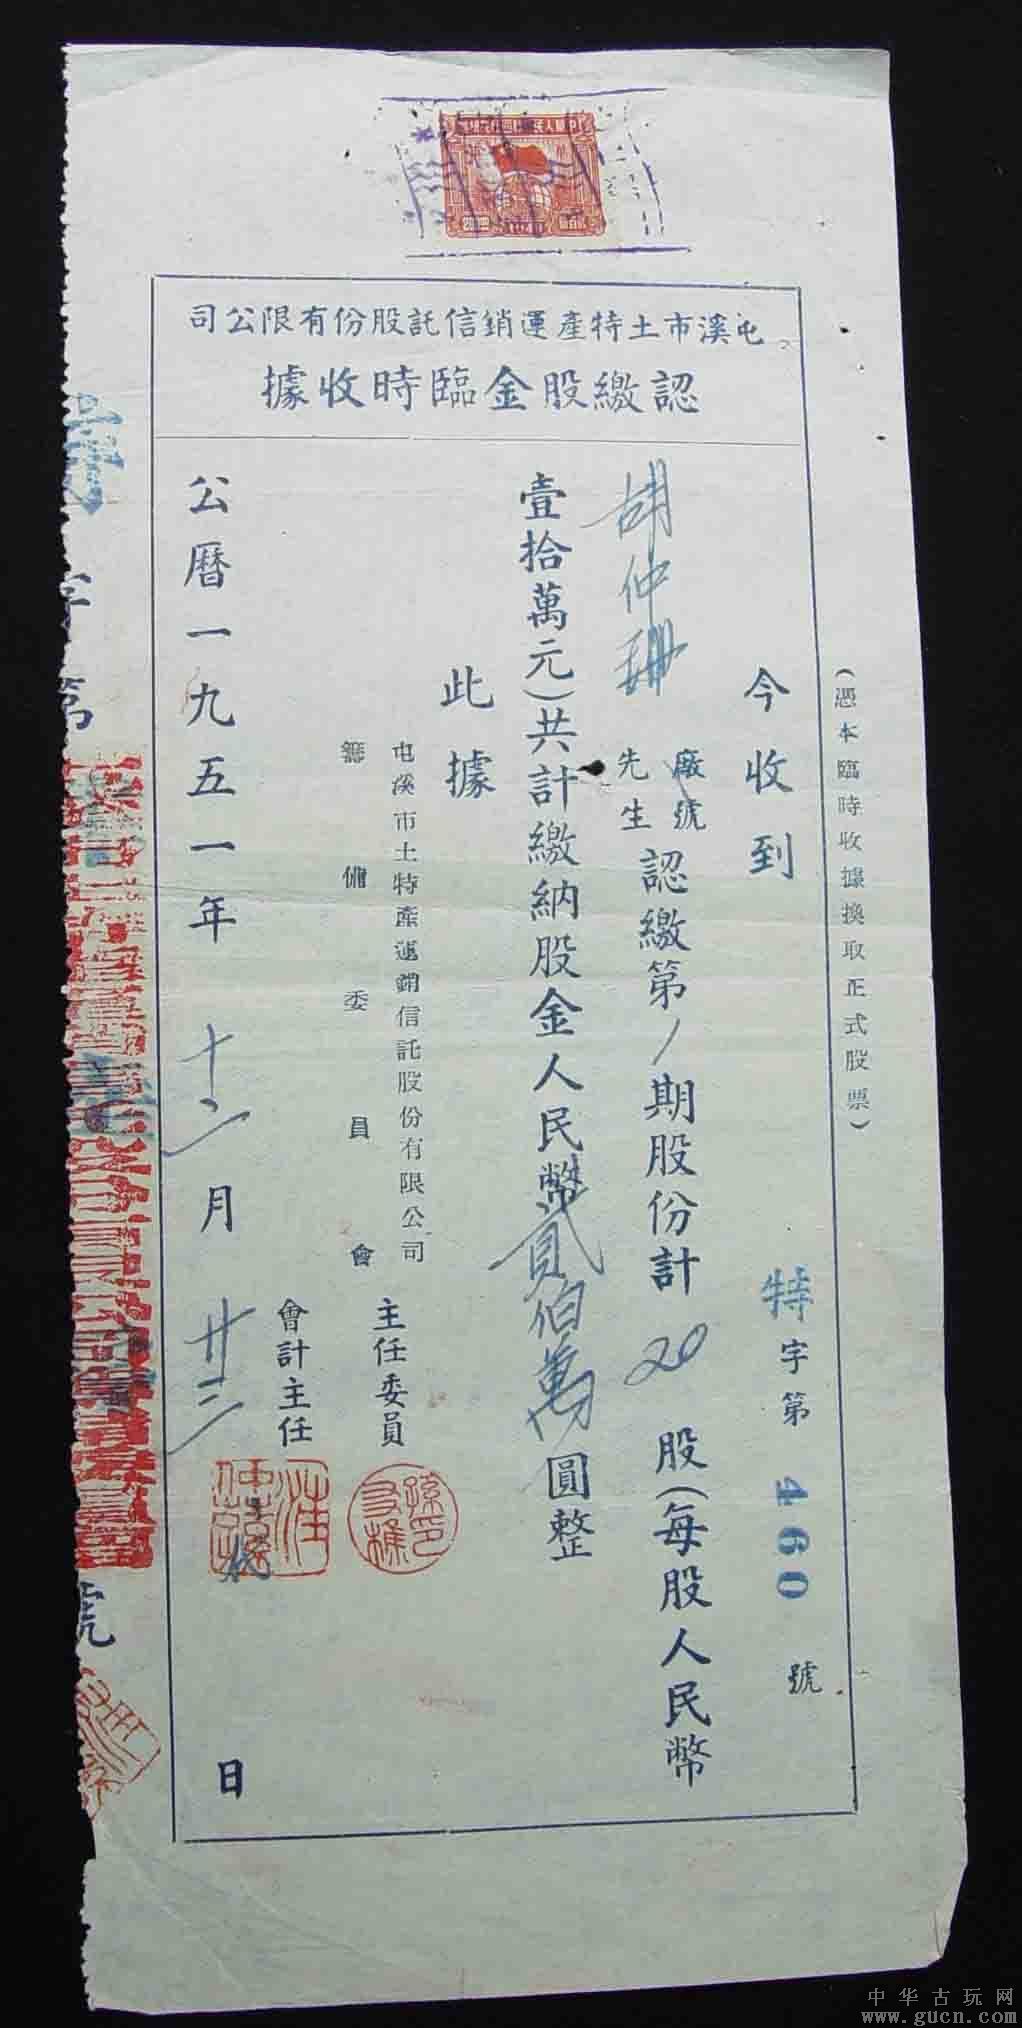 屯溪市土特產運銷信託股份有限公司
認繳股金臨時收據
(憑本臨時收據換取正式股票)
特字第460號
今收到
胡仲珊
廠號
先生
認繳第1期股份計20股(每股人民幣
壹拾萬元)共計繳納股金人民幣貳佰萬圓整
此據
屯溪市土特產運銷信託股份有限公司
籌備委員會
主任委員
會計主任
公曆一九五一年十二月廿三日
特字第
號
中华古玩网
www.gucn.com